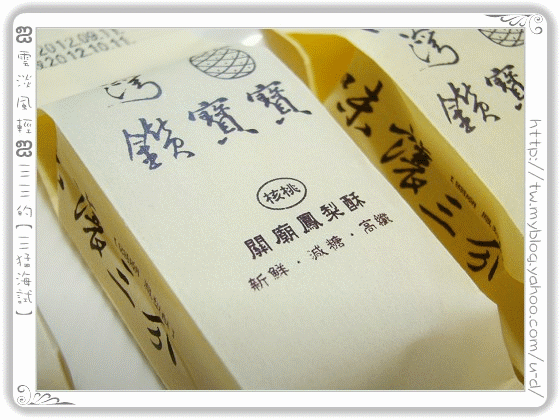 2012.09.11.
2012.10.11.
灣
鑽寶寶
核桃
關廟鳳梨酥
新鮮・減糖・高纖
濃三分
味濃三分
灣
鑽寶
雲淡風輕
三三的【三猛海試】
http://tw.myblog.yahoo.com/u-d/